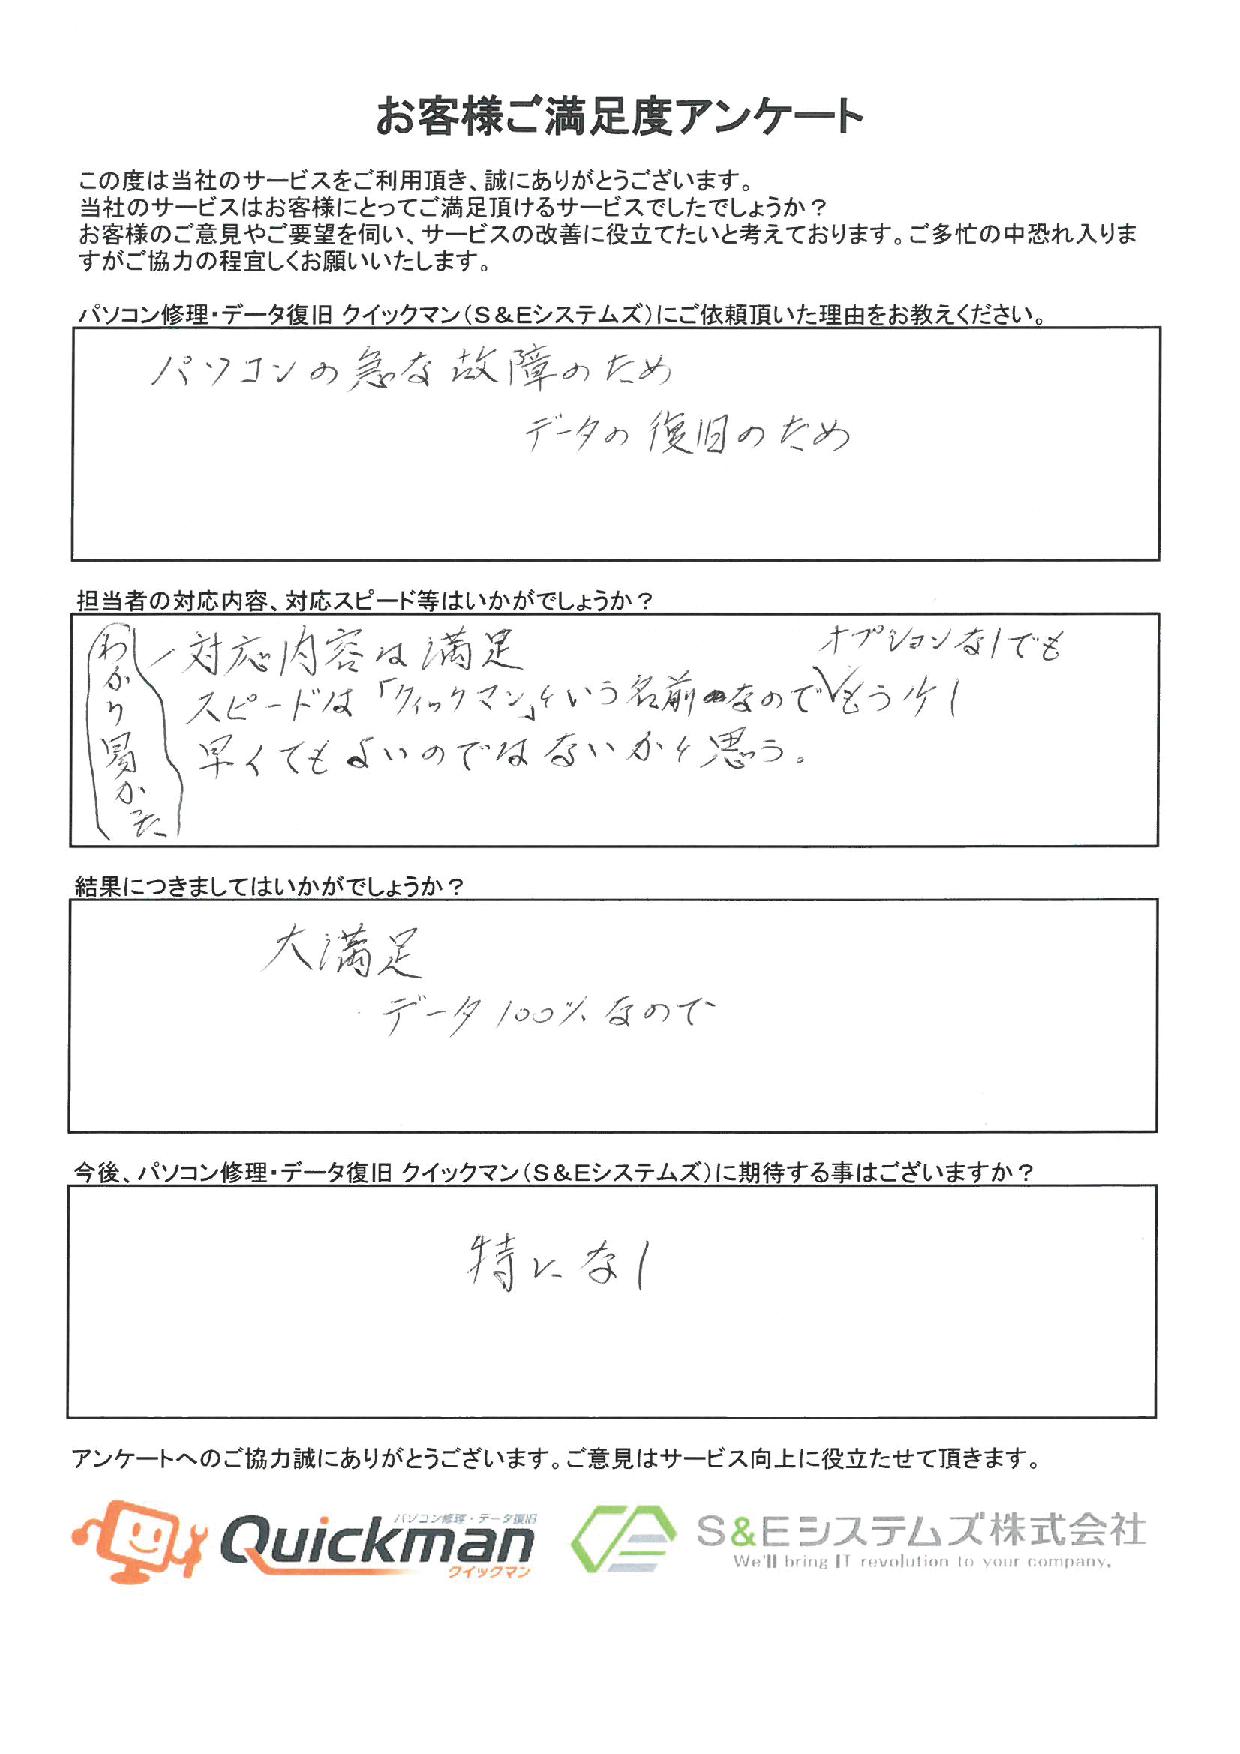 お客様ご満足度アンケート
この度は当社のサービスをご利用頂き、誠にありがとうございます。
当社のサービスはお客様にとってご満足頂けるサービスでしたでしょうか？
お客様のご意見やご要望を伺い、サービスの改善に役立てたいと考えております。ご多忙の中恐れ入りま
すがご協力の程宜しくお願いいたします。
パソコン修理・データ復旧 クイックマン（S＆Eシステムズ）にご依頼頂いた理由をお教えください。
パソコンの急な故障のため
データの復旧のため
担当者の対応内容、対応スピード等はいかがでしょうか？
わかり易かた
対応内容は満足
オプションなしでも
スピードは「クィックマン」という名前なのでもう少し
早くてもよいのではないかと思う。
結果につきましてはいかがでしょうか？
大満足
データ100%なので
今後、パソコン修理・データ復旧 クイックマン（S＆Eシステムズ）に期待する事はございますか？
特になし
アンケートへのご協力誠にありがとうございます。ご意見はサービス向上に役立たせて頂きます。
パソコン修理・データ復旧
Quickman
クイックマン
S&Eシステムズ株式会社
We'll bring IT revolution to your company.